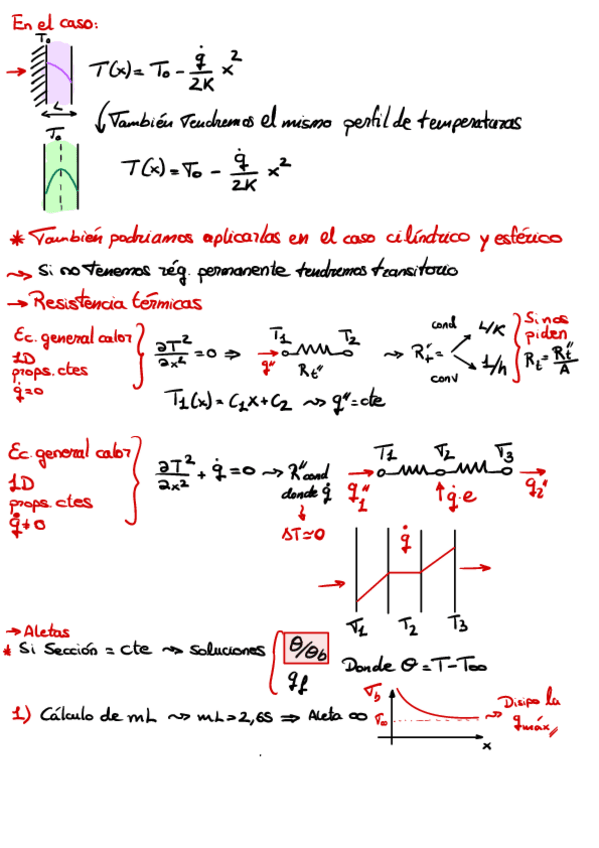 En el caso:
T₀
T(x) = T₀ - q̇/2K x²
L
También tendremos el mismo perfil de temperaturas
T₀
T(x) = T₀ - q̇/2K x²
* También podríamos aplicarlas en el caso cilíndrico y esférico
⇝ Si no tenemos rég. permanente tendremos transitorio
→ Resistencia térmicas
Ec. general calor
1D
props. ctes
q̇=0
∂T²/∂x² = 0 ⇒
T₁ T₂
q''
Rt''
⇝ Rt''=
cond L/K
conv 1/h
Si nos piden
Rt = Rt''/A
T₁(x) = C₁x + C₂ ⇝ q''=cte
Ec. general calor
1D
props. ctes
q̇≠0
∂T²/∂x² + q̇ = 0 ⇝ R''cond
donde q̇
↓
ΔT≃0
T₁ T₂ T₃
q₁'' ↑q̇·e q₂''
q̇
T₁ T₂ T₃
→ Aletas
* Si Sección = cte ⇝ soluciones
θ/θb
qf
Donde θ = T - T∞
1) Cálculo de mL ⇝ mL > 2,65 ⇒ Aleta ∞
Tb
T∞
x
⇝ Disipo la qmáx